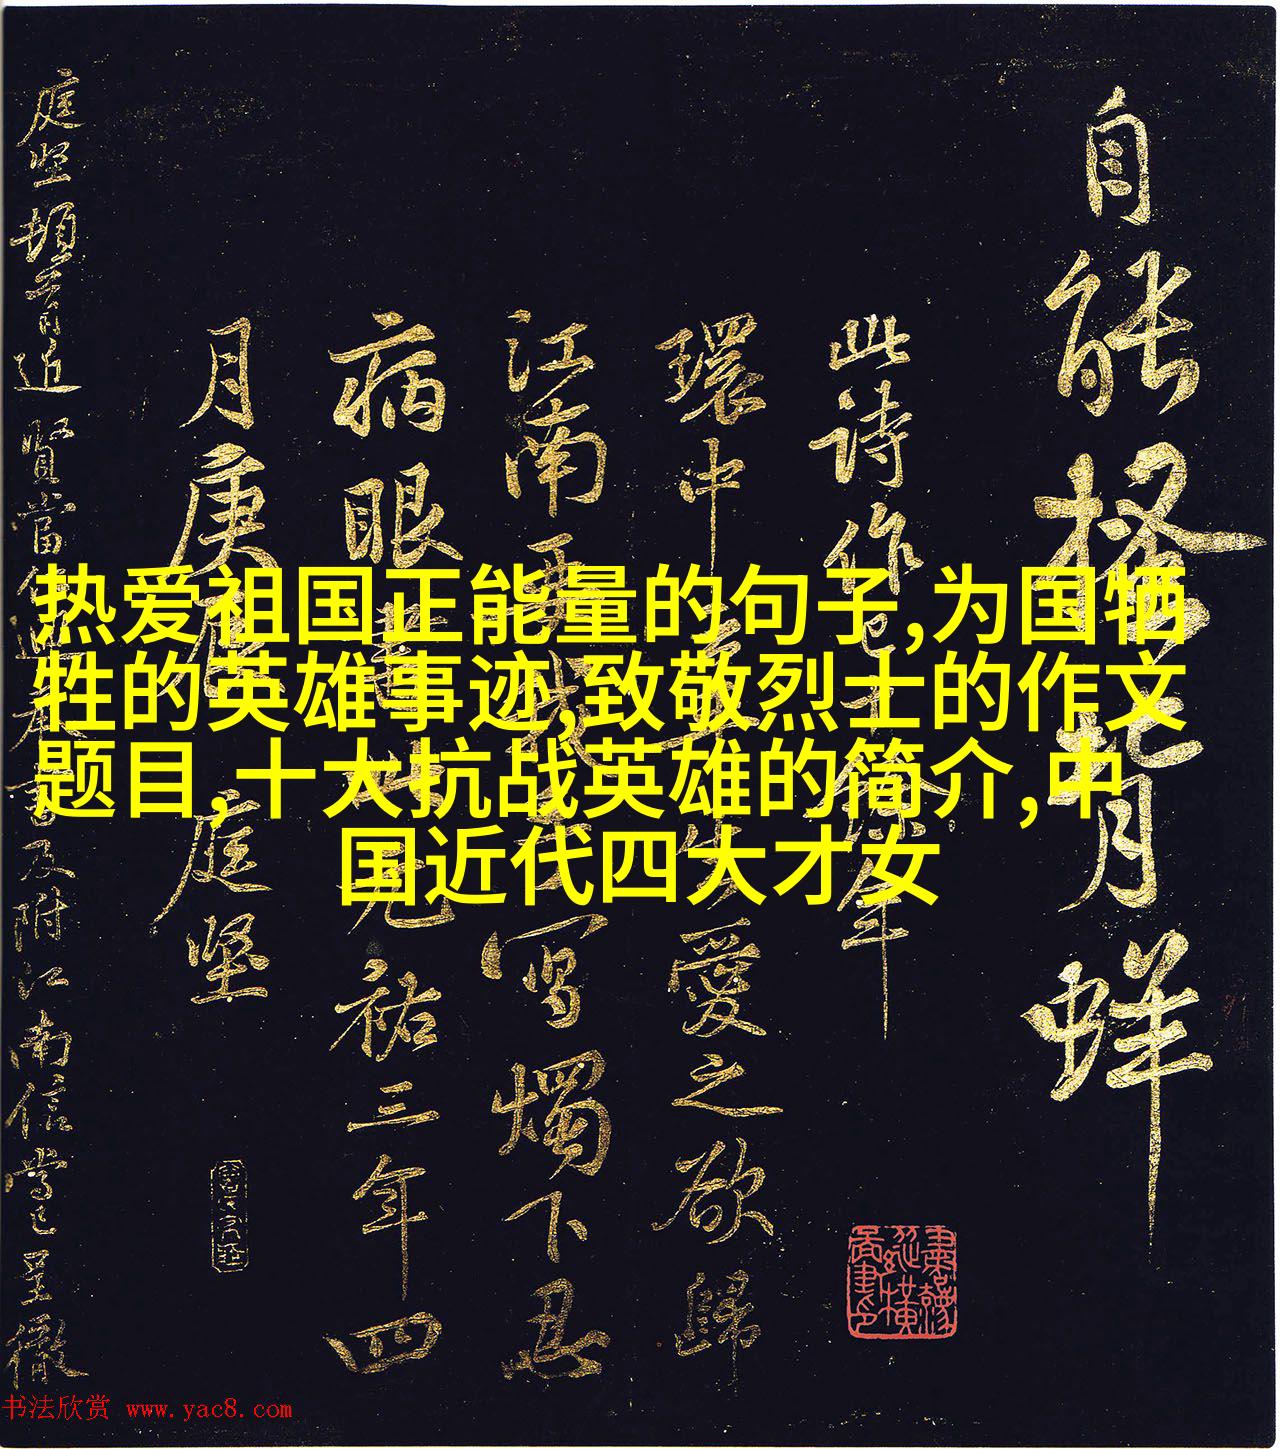 热爱祖国正能量的句子,为国牺
牲的英雄事迹,致敬烈士的作文
题目,十大抗战英雄的简介,中
国近代四大才女
自能 背 蜂
此诗作 年
環中 愛之欲歸
江南 写燭下忍
病眼 元祐三年四
月庚 庭坚
庭坚頓首 近 賢當 及附江南信 呈徹
书法欣赏 www.yac8.com